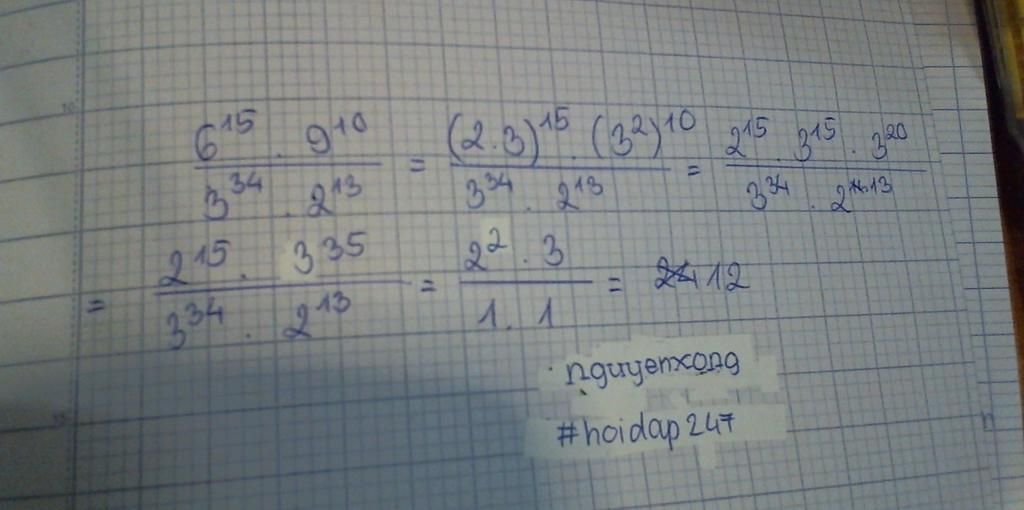 6^15 . 9^10 / 3^34 . 2^13 = (2.3)^15 . (3^2)^10 / 3^34 . 2^13 = 2^15 . 3^15 . 3^20 / 3^34 . 2^13
= 2^15 . 3^35 / 3^34 . 2^13 = 2^2 . 3 / 1 . 1 = 12
nguyenxong
#hoidap247